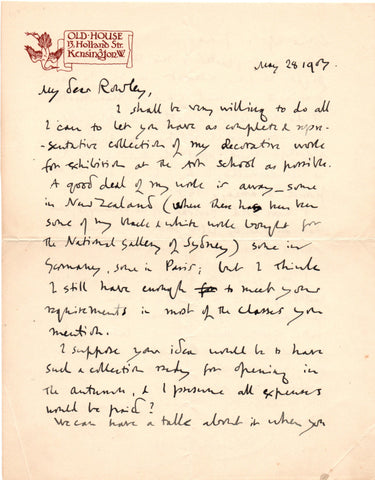 OLD·HOUSE
13. Holland Str.
Kensington.W.
May 28 1907.
My dear Rowley,
I shall be very willing to do all
I can to let you have as complete & repre-
-sentative collection of my decorative work
for exhibition at the school as possible.
A good deal of my work is away — some
in New Zealand (where there has been
some of my black & white work bought for
the National Gallery of Sydney) some in
Germany, some in Paris; but I think
I still have enough to meet your
requirements in most of the classes you
mention.
I suppose your idea would be to have
such a collection ready for opening in
the autumn, & I presume all expenses
would be paid?
We can have a talk about it when you